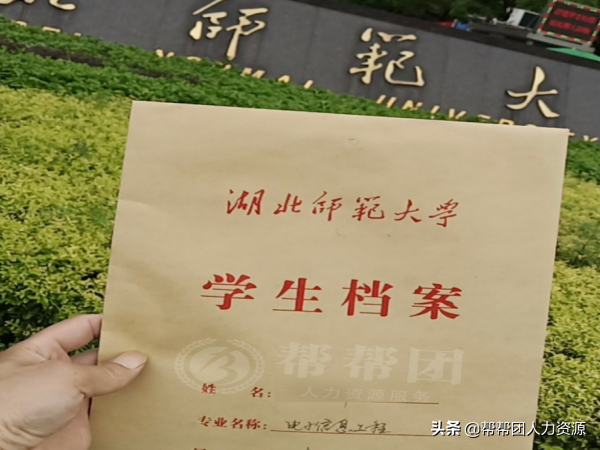 師範大
湖北師範大學
学生档案
帮帮团
人力资源服务
姓 名:
专业名称: 电子信息工程
头条 @帮帮团人力资源